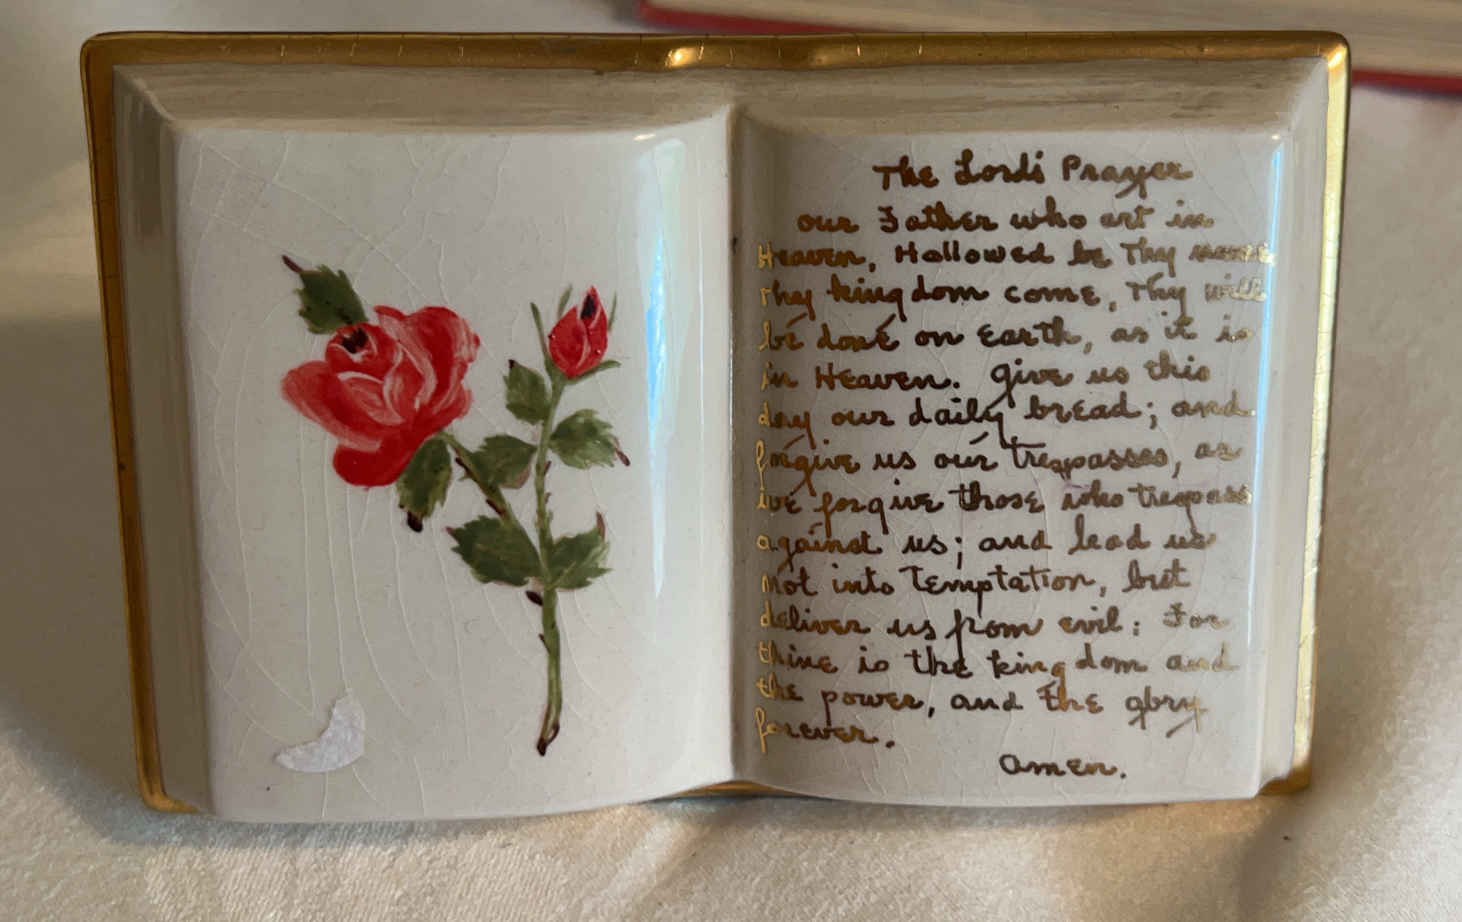 The Lord's Prayer
our Father who art in
Heaven, Hallowed be Thy name
Thy kingdom come, Thy will
be done on Earth, as it is
in Heaven. Give us this
day our daily bread; and
forgive us our trespasses, as
we forgive those who trespass
against us; and lead us
not into Temptation, but
deliver us from evil: For
thine is the kingdom and
the power, and the glory
forever.
Amen.